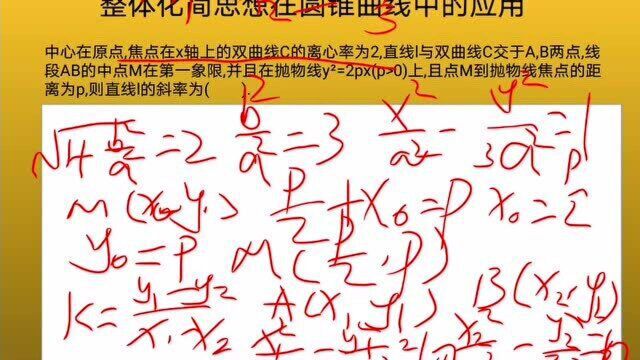 整体化简思想在圆锥曲线中的应用
中心在原点,焦点在x轴上的双曲线C的离心率为2,直线l与双曲线C交于A,B两点,线
段AB的中点M在第一象限,并且在抛物线y²=2px(p>0)上,且点M到抛物线焦点的距
离为p,则直线l的斜率为(
√1+b²/a² = 2 b²/a² = 3 x²/a² - y²/3a² = 1
M(x₀ y₀) p/2 + x₀ = p x₀ = p/2
y₀ = p M(p/2, p)
K = y₁-y₂/x₁-x₂ A(x₁, y₁) B(x₂, y₂)